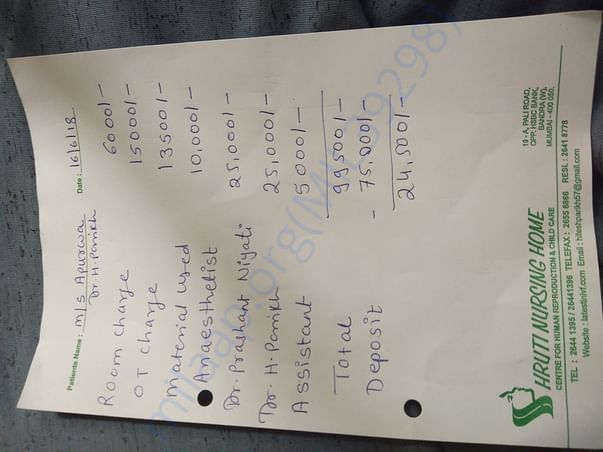 Patients Name : M/s Apurwa Date : 16/6/18
Dr. H. Parikh
Room charge 6000/-
OT charge 15000/-
Material used 13500/-
Anaesthetist 10,000/-
Dr. Prashant Niyati 25,000/-
Dr. H. Parikh 25,000/-
Assistant 5000/-
Total 99500/-
Deposit - 75,000/-
24,500/-
SHRUTI NURSING HOME
CENTRE FOR HUMAN REPRODUCTION & CHILD CARE
19 - A, PALI ROAD,
OPP. HSBC BANK,
BANDRA (W),
MUMBAI - 400 050.
TEL : 2644 1395 / 26441396 TELEFAX : 2655 8866 RESL : 2641 8778
Website : latestinivf.com Email : hiteshparikh57@gmail.com
milaap.org(MIL392298)